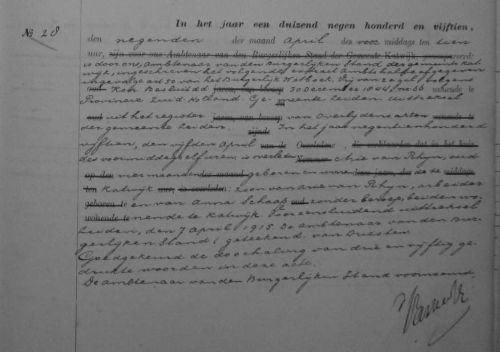 No 28
In het jaar een duizend negen honderd en vijftien,
den negenden der maand April des voor middags ten tien
uur, zijn voor ons Ambtenaar van den Burgerlijken Stand der Gemeente Katwijk
is door ons, Ambtenaar van den Burgerlijken Stand der gemeente Kat-
wijk, ingeschreven het volgende extract ambtshalve afgegeven
ingevolge art. 50 van het Burgerlijk Wetboek. Vrij van zegel, volgens
Kon. Besluit d.d. 30 December 1844, no 66
Provincie Zuid Holland. Gemeente Leiden. Uittreksel
uit het register van Overlydensacten
der gemeente Leiden. In het jaar negentienhonderd
vijftien, den vijfden April
des voormiddags elf uren, is overleden Arie van Rhyn, oud
vier maanden geboren en wonende
Katwijk zoon van Arie van Rhyn, arbeider
en van Anna Schaap zonder beroep, beiden wo-
nende te Katwijk. Voor eensluidend uittreksel
Leiden, den 7 April 1915. De Ambtenaar van den Bur-
gerlijken Stand (geteekend) van
Goedgekeurd de doorhaling van drie en vijftig ge-
drukte woorden in deze akte.
De Ambtenaar van den Burgerlijken Stand voornoemd,